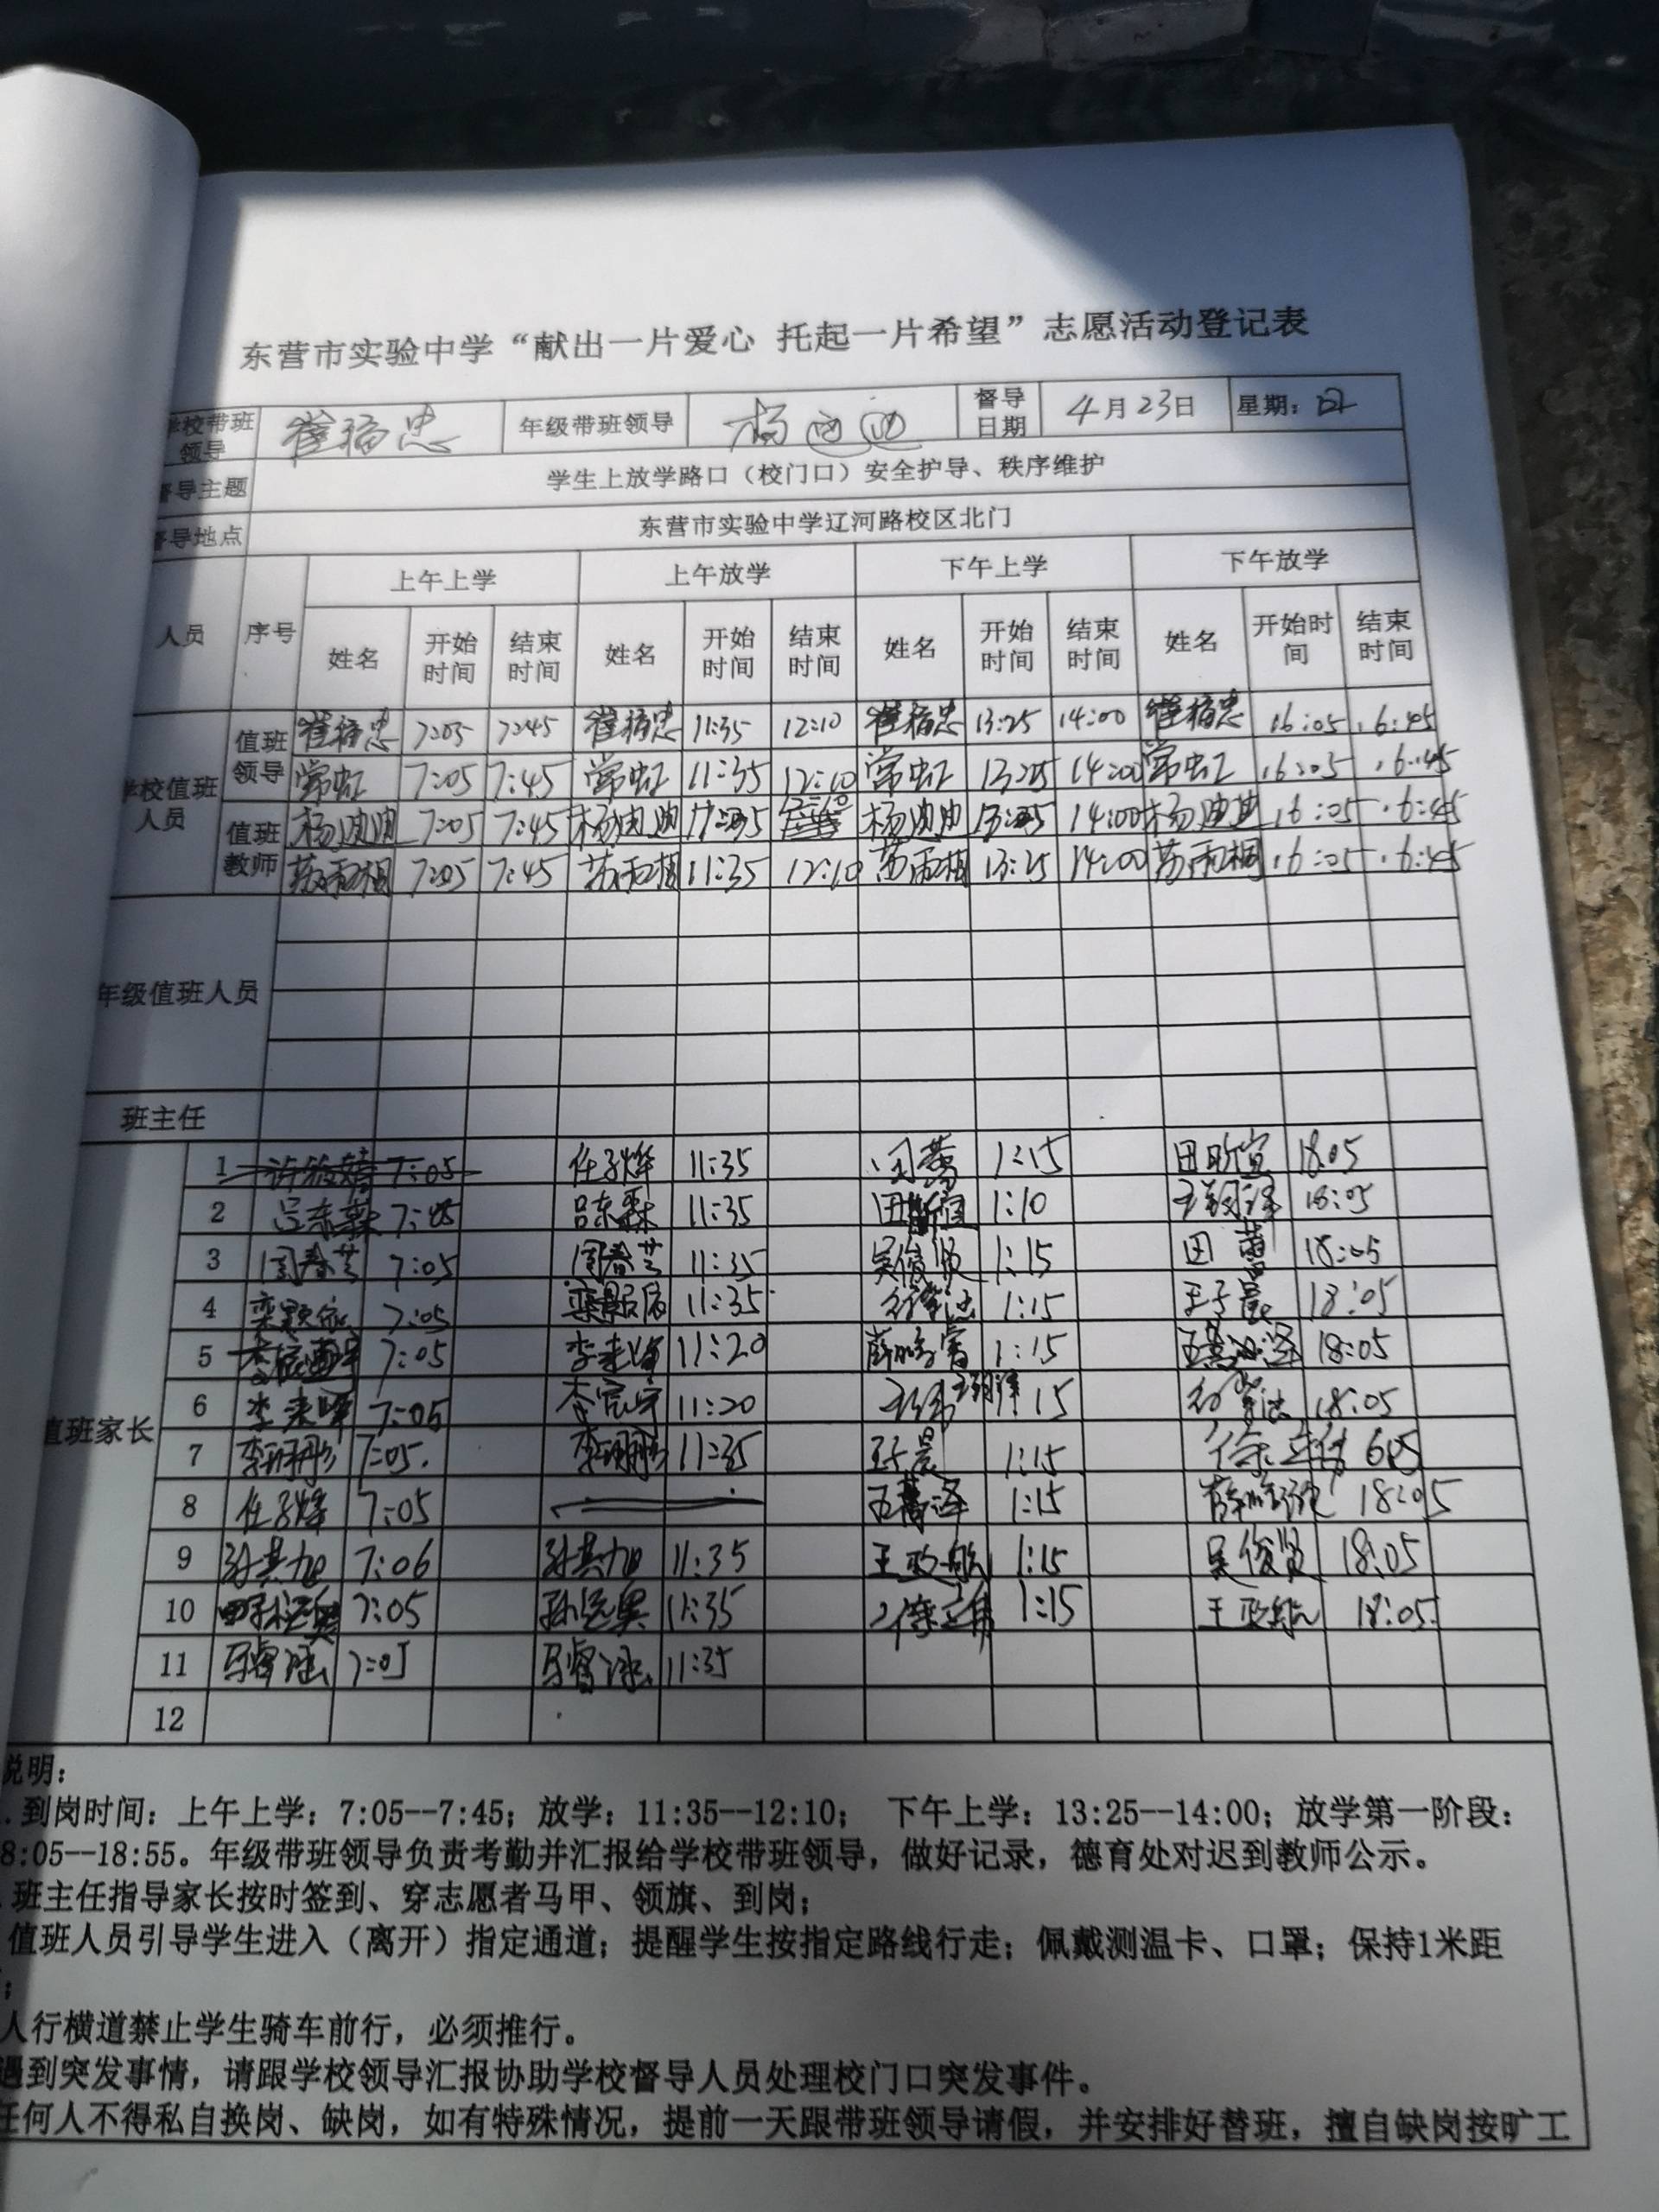 东营市实验中学“献出一片爱心 托起一片希望”志愿活动登记表
学校带班领导 崔福忠 年级带班领导 杨迪迪 督导日期 4月23日 星期：四
督导主题 学生上放学路口（校门口）安全护导、秩序维护
督导地点 东营市实验中学辽河路校区北门
人员 序号 上午上学 上午放学 下午上学 下午放学
姓名 开始时间 结束时间 姓名 开始时间 结束时间 姓名 开始时间 结束时间 姓名 开始时间 结束时间
学校值班人员
值班领导 崔福忠 7:05 7:45 崔福忠 11:35 12:10 崔福忠 13:25 14:00 崔福忠 16:05 16:45
常虹 7:05 7:45 常虹 11:35 12:10 常虹 13:25 14:00 常虹 16:05 16:45
值班教师 杨迪迪 7:05 7:45 杨迪迪 11:35 12:10 杨迪迪 13:25 14:00 杨迪迪 16:05 16:45
苏雨桐 7:05 7:45 苏雨桐 11:35 12:10 苏雨桐 13:25 14:00 苏雨桐 16:05 16:45
年级值班人员
班主任
值班家长
1 7:05 任子烨 11:35 1:15 田昕宜 18:05
2 吕东霖 7:05 吕东霖 11:35 1:10 王翔泽 18:05
3 周春芸 7:05 周春芸 11:35 吴俊贤 1:15 18:05
4 7:05 11:35 1:15 王子晨 18:05
5 7:05 李来峰 11:20 1:15 18:05
6 李来峰 7:05 11:20 1:15 18:05
7 李珊彤 7:05. 李珊彤 11:35 王子晨 1:15 605
8 任子烨 7:05 1:15 18:05
9 孙其旭 7:06 孙其旭 11:35 王政航 1:15 吴俊贤 18:05
10 7:05 11:35 1:15 王政航 18:05
11 马睿涵 7:05 马睿涵 11:35
12
说明：
.到岗时间：上午上学：7:05--7:45；放学：11:35--12:10； 下午上学：13:25--14:00；放学第一阶段：
8:05--18:55。年级带班领导负责考勤并汇报给学校带班领导，做好记录，德育处对迟到教师公示。
.班主任指导家长按时签到、穿志愿者马甲、领旗、到岗；
值班人员引导学生进入（离开）指定通道；提醒学生按指定路线行走；佩戴测温卡、口罩；保持1米距
；
人行横道禁止学生骑车前行，必须推行。
遇到突发事情，请跟学校领导汇报协助学校督导人员处理校门口突发事件。
任何人不得私自换岗、缺岗，如有特殊情况，提前一天跟带班领导请假，并安排好替班，擅自缺岗按旷工